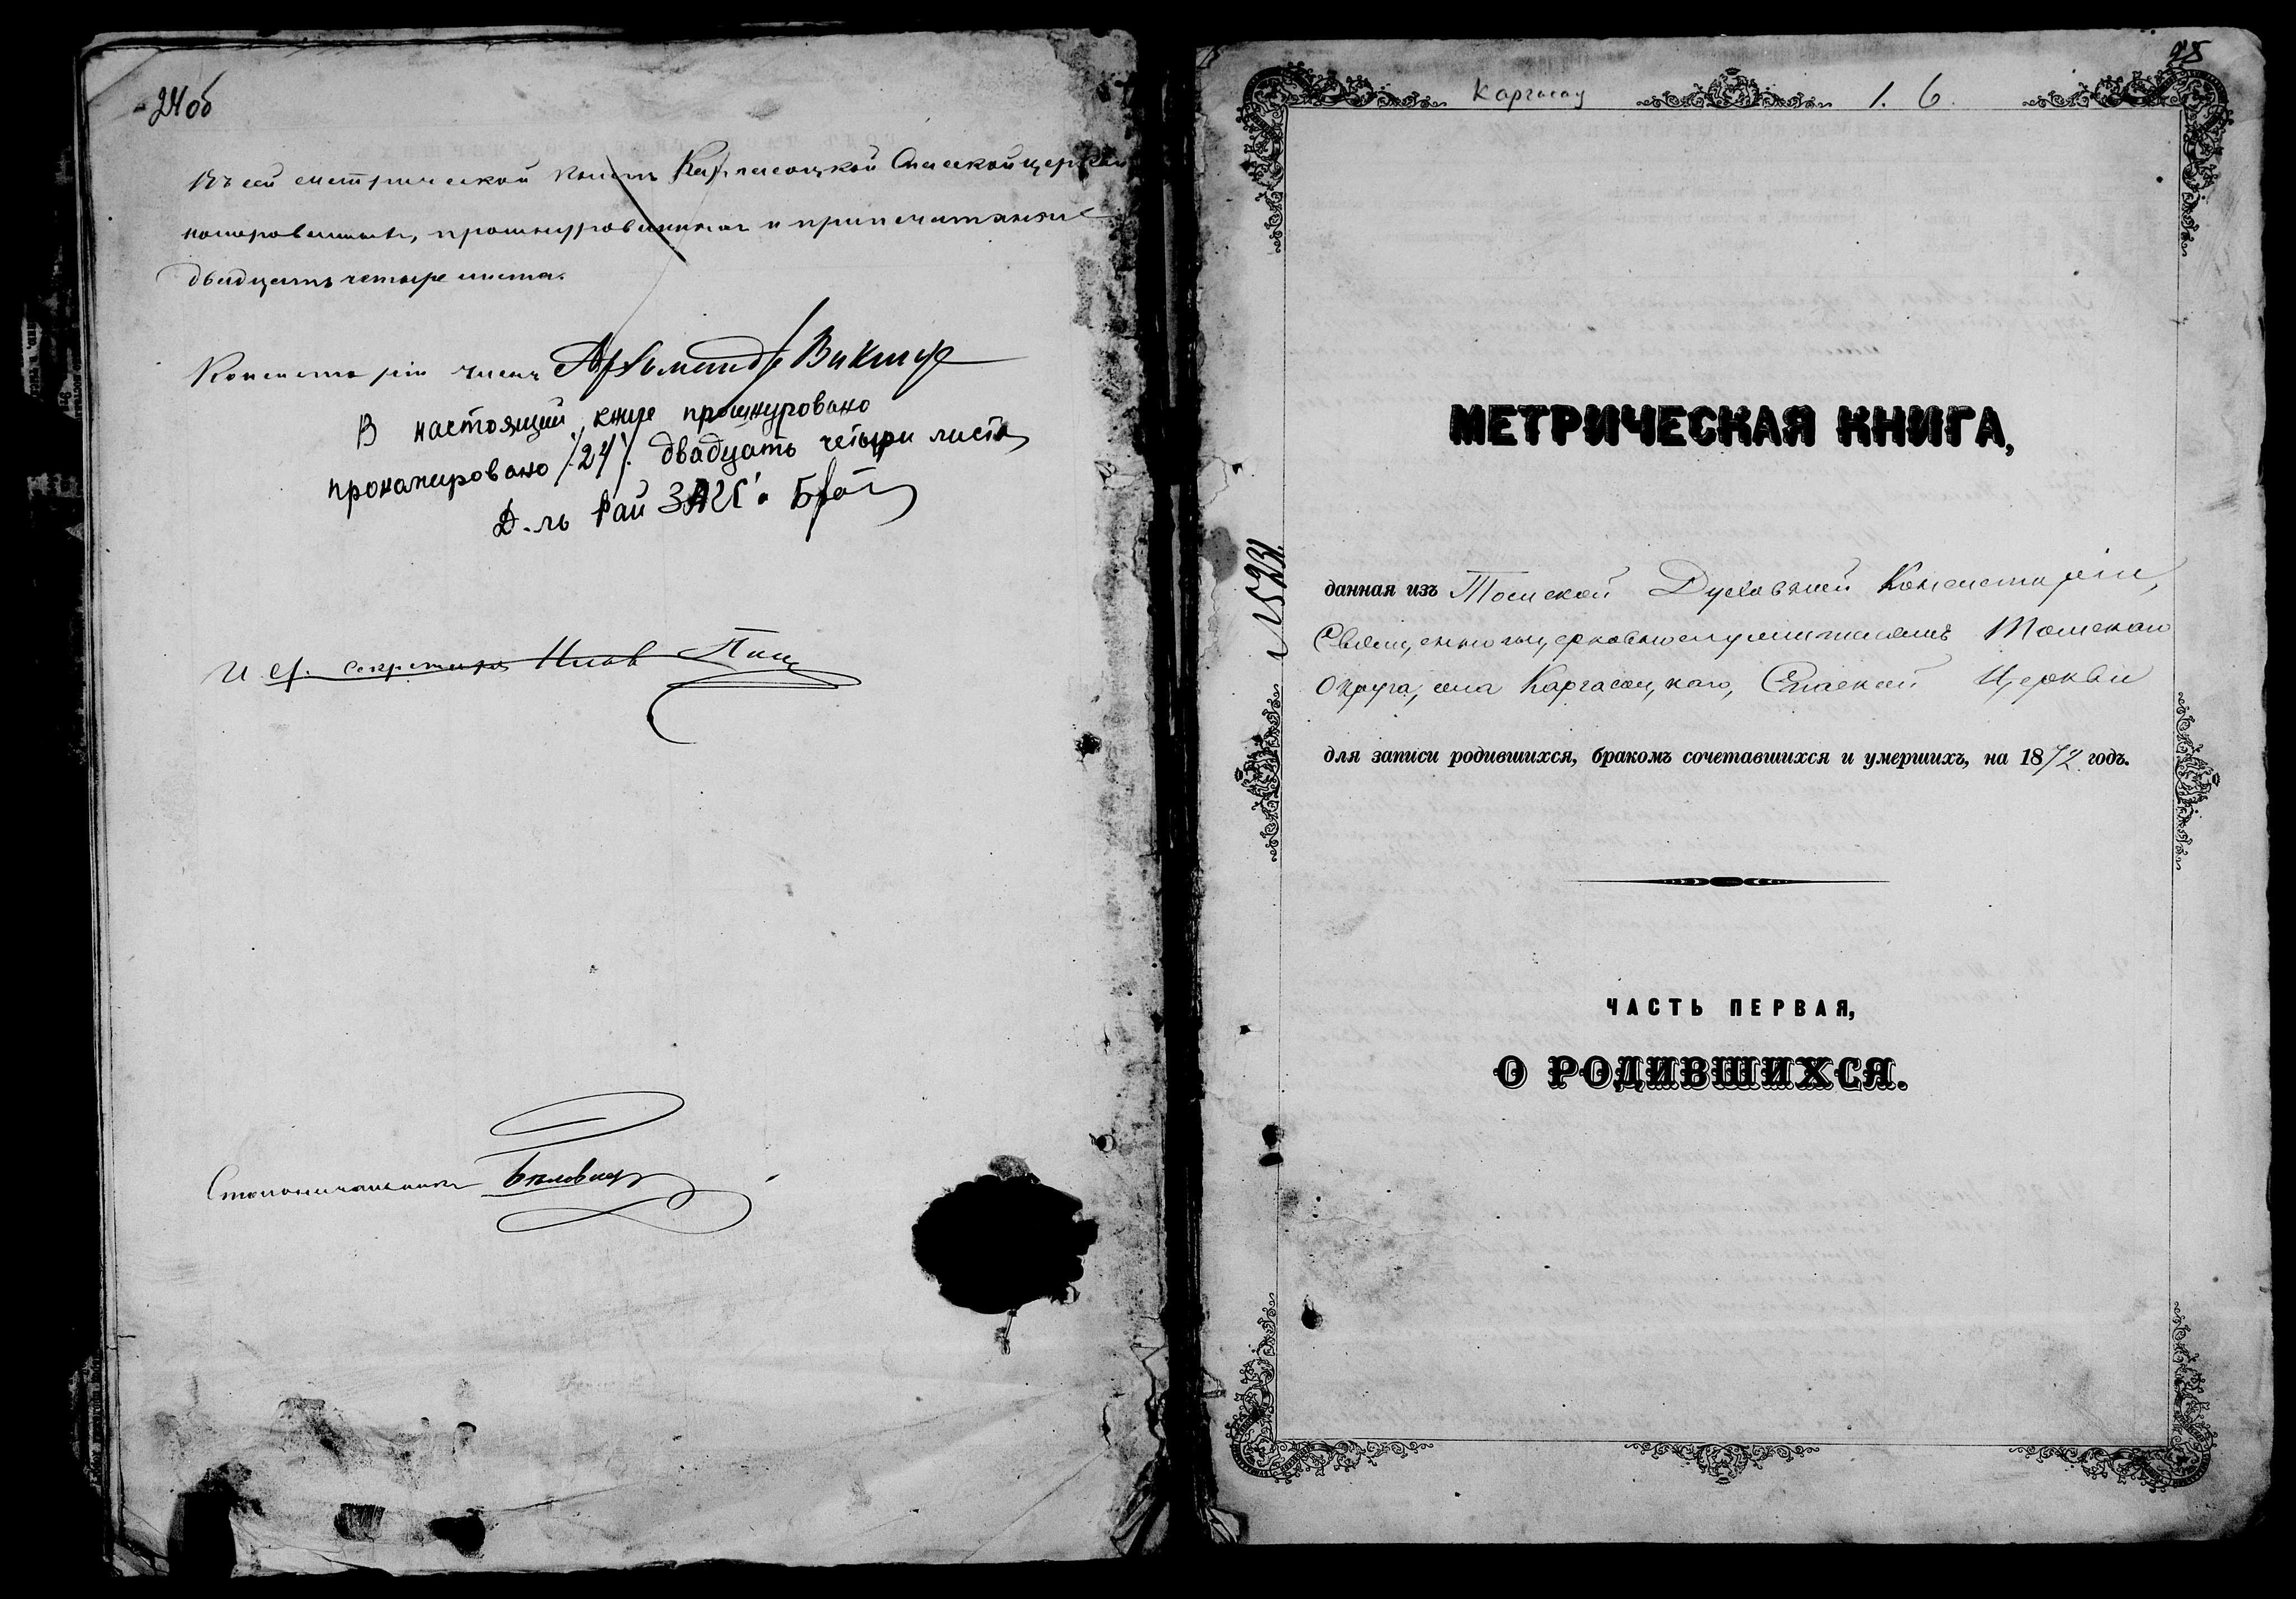 24 об
Въ сей метрической книгѣ Каргасоцкой Спасской церкви
номерованныхъ, прошнурованныхъ и припечатанныхъ
двадцать четыре листа.
Консисторіи членъ Архимандр Викторъ
В настоящий книге прошнуровано
прономировано /24/. двадцать четыри листа
Д-ль Рай ЗАГС'а
И. об. секретаря
Столоначальникъ
25
Каргасоц 1. 6.
МЕТРИЧЕСКАЯ КНИГА,
№ 5231.
данная изъ Томской Духовной Консисторіи,
Священноцерковнослужителямъ Томскаго
Округа, села Каргасоцкаго, Спаской Церкви
для записи родившихся, бракомъ сочетавшихся и умершихъ, на 1872 годъ.
ЧАСТЬ ПЕРВАЯ,
О РОДИВШИХСЯ.